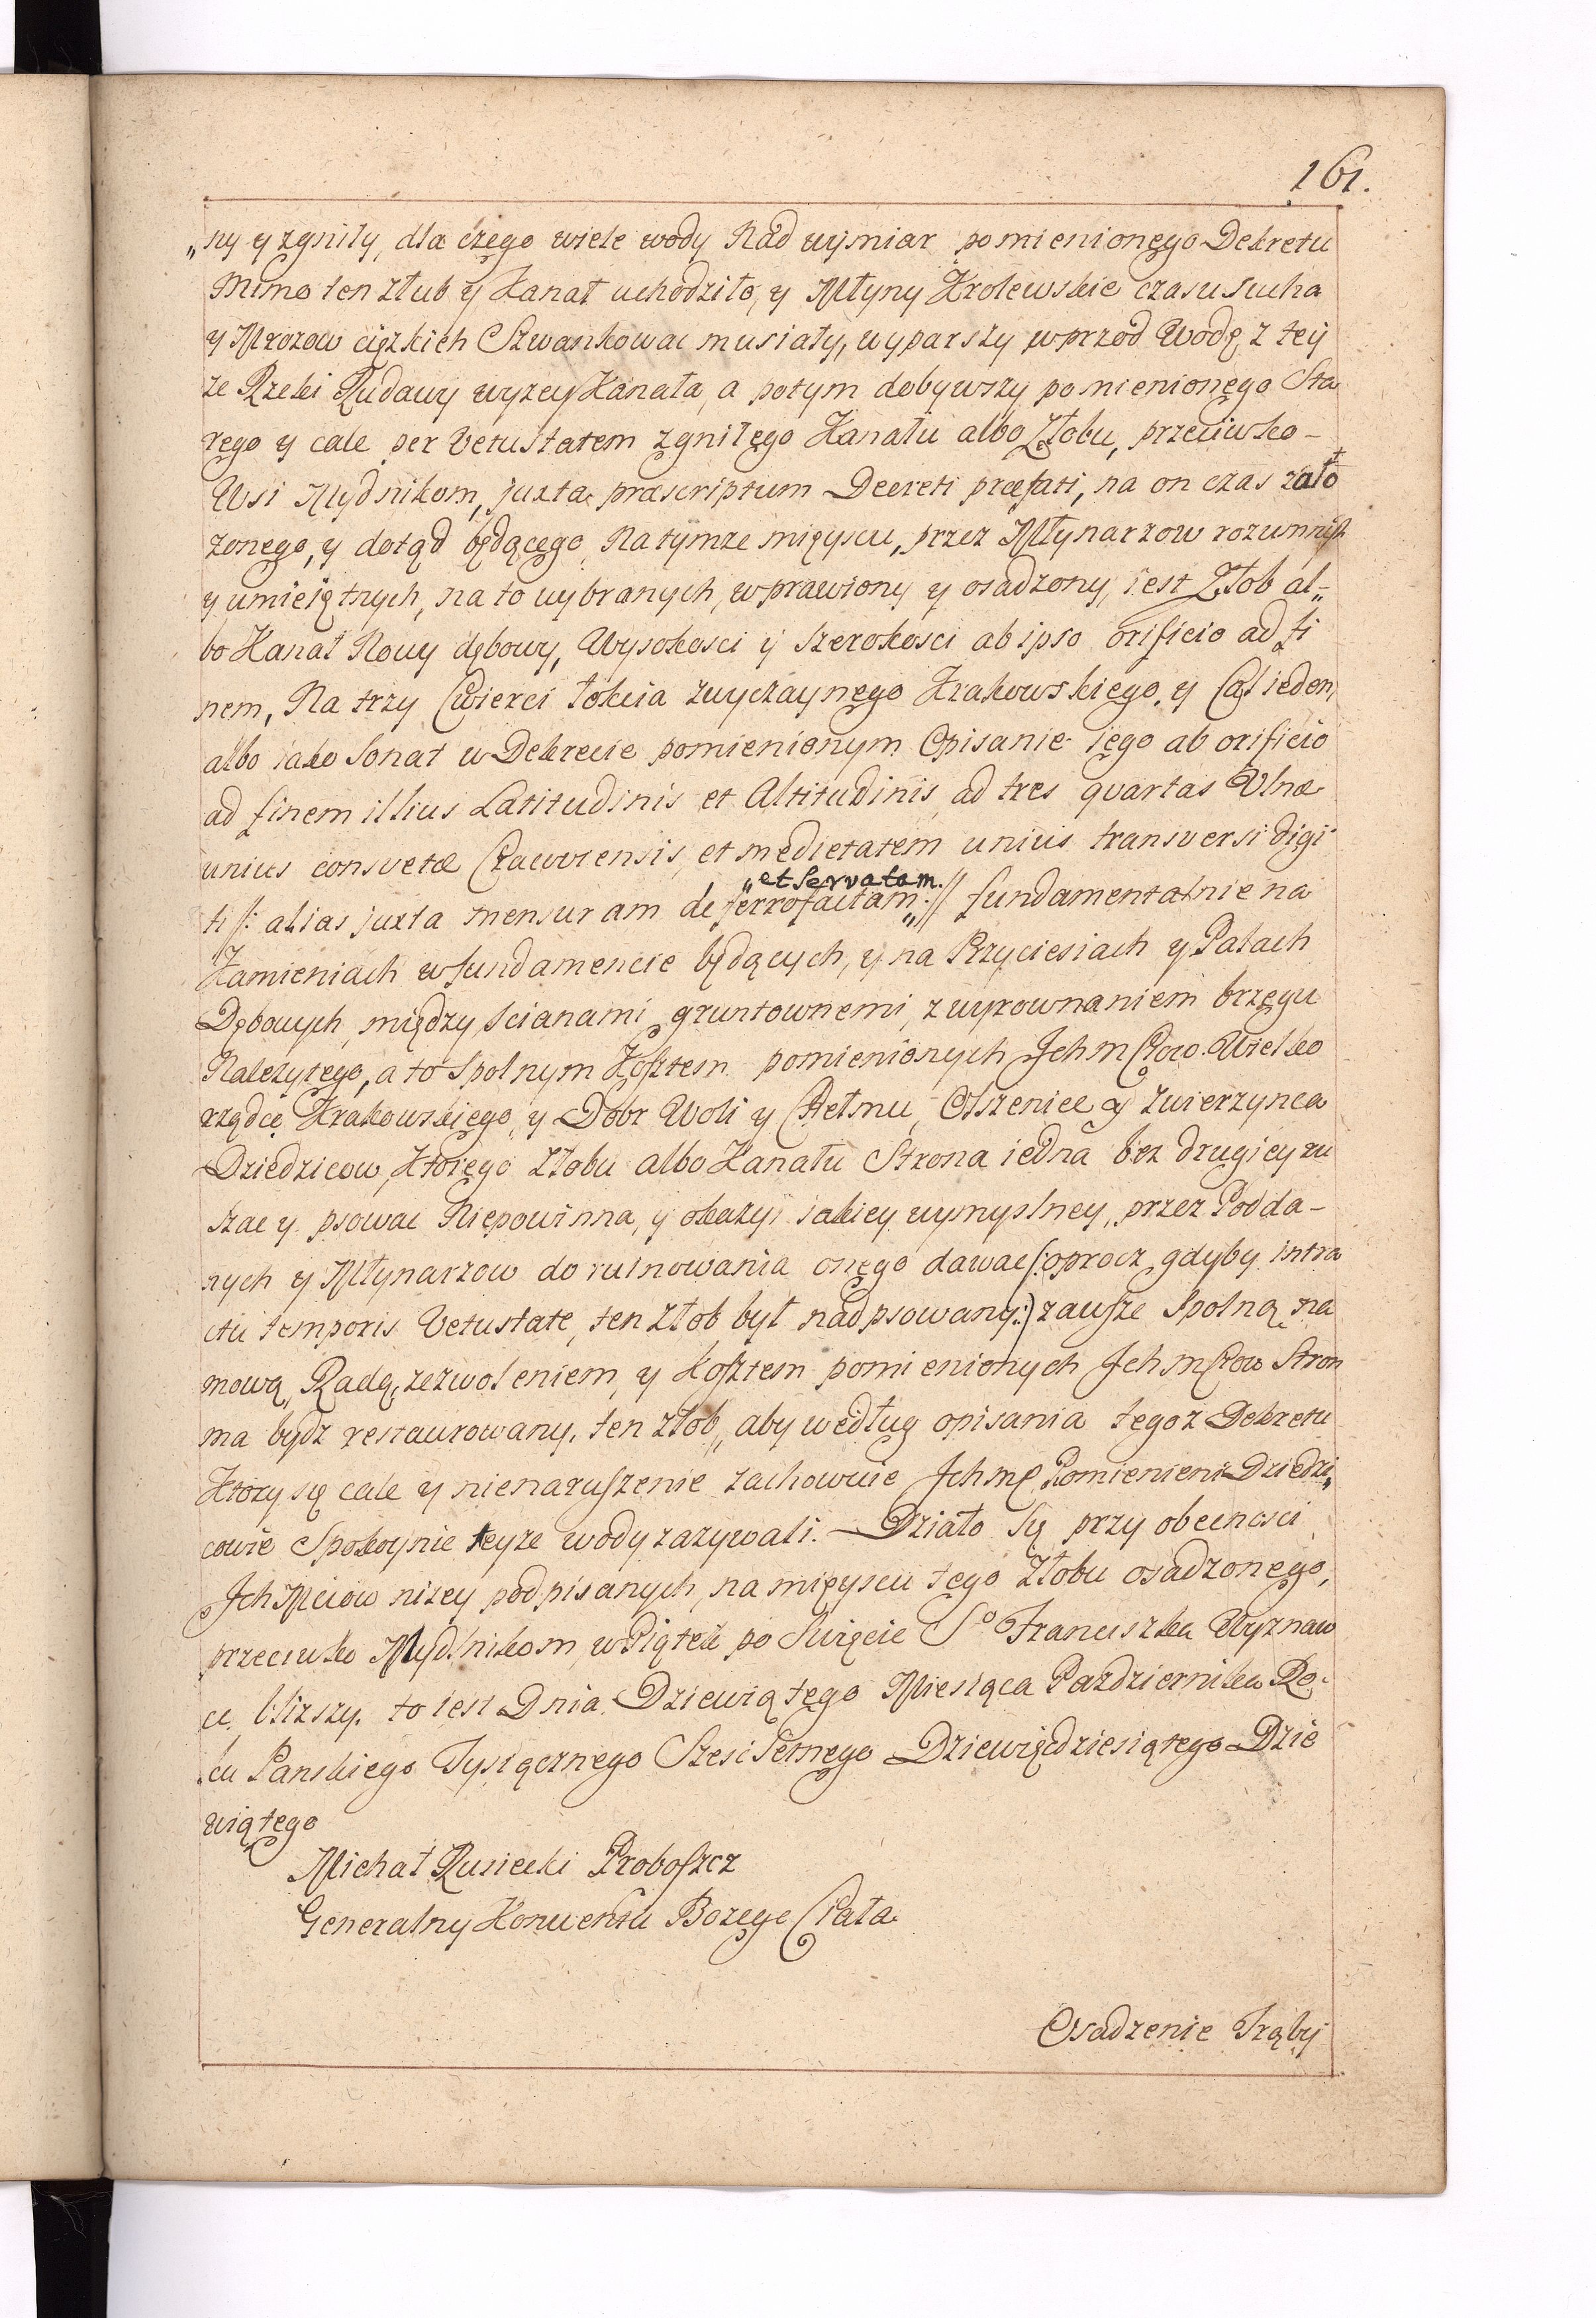 161.
„ny y zgniły, dla czego wiele wody Nad wymiar pomienionego Dekretu
Mimo ten Złub y Kanał uchodziło, y Młyny Krolewskie czasu sucha
y Mrozow ciężkich Szwankowac musiały, wyparszy wprzod Wodę z tey
ze Rzeki Rudawy wyzey Kanała, a potym dobywszy pomienionego Sta
rego y cale per Vetustatem zgniłego Kanału albo Złobu, przeciwko-
Wsi Mydnikom, juxta præscriptum Decreti præfati, na on czas zało
zonego, y dotąd będącego, Na tymze mieyscu, przez Młynarzow rozumnych
y umieiętnych, na to wybranych, wprawiony y osadzony, iest Złob al„
bo Kanał Nowy dębowy, Wysokosci y szerokosci ab ipso orificio ad fi
nem, Na trzy Cwierci łokcia zwyczaynego Krakowskiego, y Cal ieden,
albo iako Sonat w Dekrecie pomienionym Opisanie iego ab orificio
ad finem illius Latitudinis et Altitudinis, ad tres quartas Ulnæ
unius consvetæ Cracoviensis, et medietatem unius transversi digi
„et Servatam.
ti /: alias juxta mensuram de ferro factam„ :// fundamentalnie na
Kamieniach w fundamencie będących, y na Przyciesiach y Palach
Dębowych, między scianami gruntownemi, z wyrownaniem brzegu
Nalezytego, a to Spolnym Kosztem pomienionych Jchm Ciow. Wielko
rządcę Krakowskiego, y Dobr Woli y Chełmu, Olszenice y Zwierzynca
Dziedzicow, Ktorego Złobu albo Kanału Strona iedna bez drugiey ru
szac y psowac Niepowinna, y okazyi iakiey wymyslney, przez Podda-
nych y Młynarzow do ruinowania onego dawac (: oprocz gdyby intra
ctu temporis Vetustate, ten Złob był nadpsowany :) zawsze Spolną na
mową, Radą, zezwoleniem, y Kosztem pomienionych Jchm Ciow Stron
ma bydz restaurowany, ten złob„ aby według opisania tegoz Dekretu
Ktory się cale y nienaruszenie zachowuie Jchmć Pomienieni Dziedzi„
cowie Spokoynie teyze wody zazywali. Działo Się przy obecnosci
Jch Mciow nizey podpisanych, na mieyscu tego Złobu osadzonego,
przeciwko Mydlnikom, w Piątek po Swięcie S⁰ Franciszka Wyznaw
ce blizszy. to iest Dnia Dziewiątego Miesiąca Pazdziernika Ro-
ku Panskiego Tysiącznego Szescsetnego Dziewięćdziesiątego Dzie
wiątego
Michał Rusiecki Proboszcz
Generalny Konwentu Bozego Ciała
Osadzenie Trąby